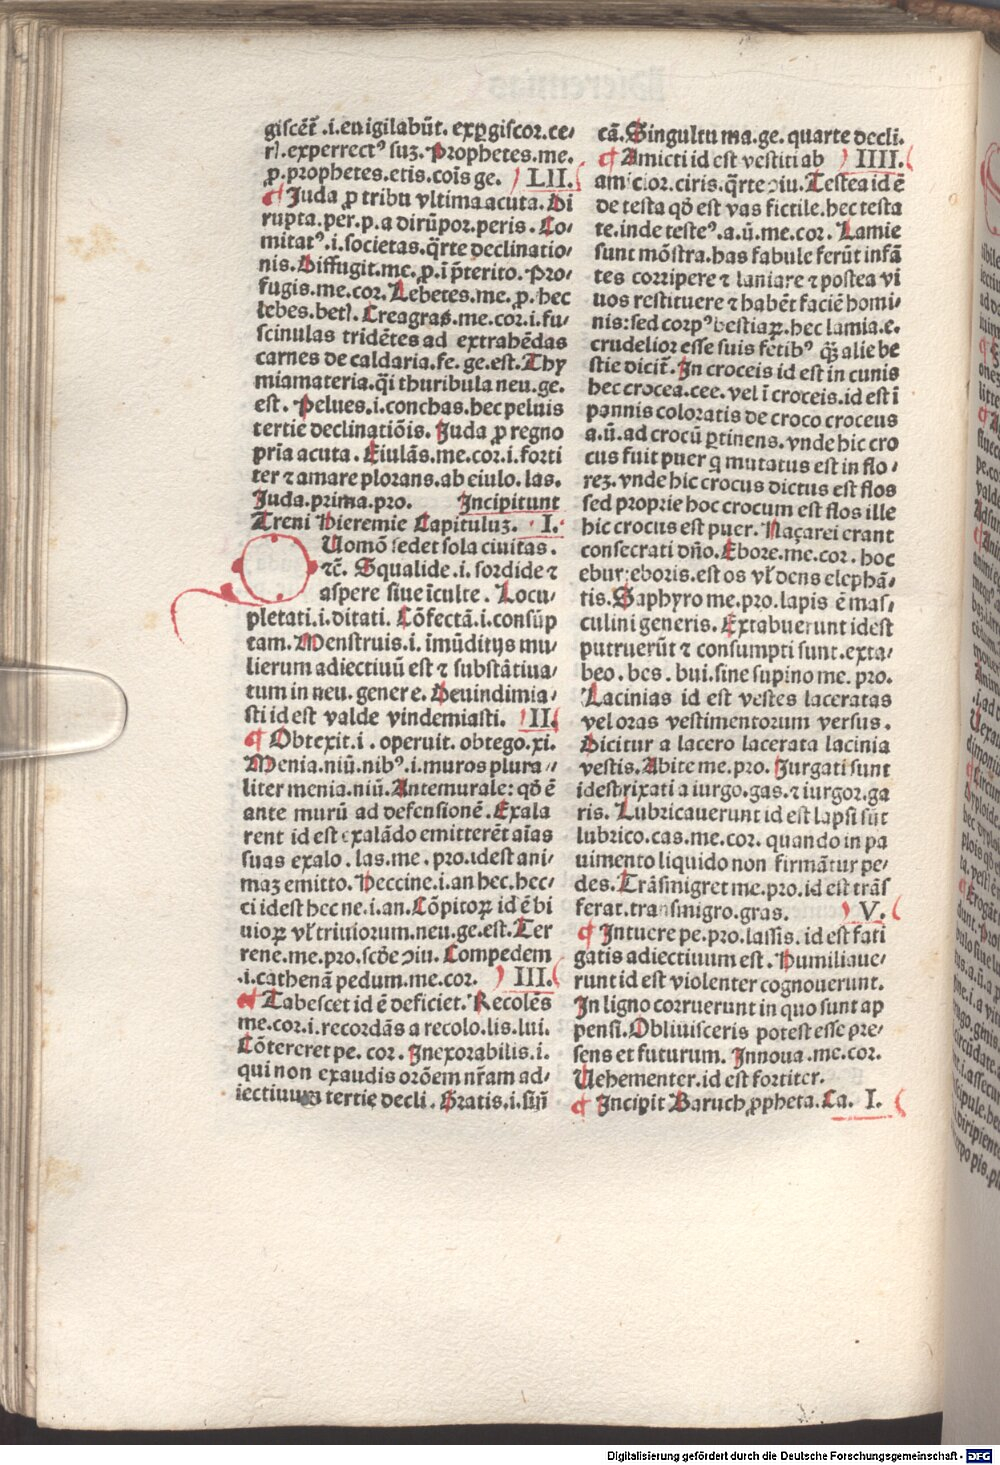 giscēt̄ .i.euigilabūt. exꝑgiscor.ce⸗
rl̄.experrectꝰ suꝫ.Prophetes.me.
ꝓ.prophetes.etis.cōis ge. LII.
¶ Juda ꝓ tribu vltima acuta. Di
rupta.per.p.a dirūpor.peris. Co⸗
mitatꝰ.i.societas.q̄rte declinatio⸗
nis.Diffugit.me.ꝓ.ī p̄terito.Pro⸗
fugis.me.cor.Lebetes.me.ꝓ.hec
lebes.betl̄.Creagras.me.cor.i.fu⸗
scinulas tridētes ad extrahēdas
carnes de caldaria.fe.ge.est.Thy
miamateria.q̄i thuribula neu.ge.
est. Pelues.i.conchas.hec peluis
tertie declinatiōis. Juda ꝓ regno
pria acuta. Eiulās.me.cor.i.forti
ter ⁊ amare plorans.ab eiulo.las.
Juda.prima.pro. Incipiunt
Treni Hieremie Capituluꝫ. I.
QUomō sedet sola ciuitas.
⁊c̄. Squalide.i.sordide ⁊
aspere siue īculte. Locu⸗
pletati.i.ditati. Cōfectā.i.consūp
tam.Menstruis.i.īmūditijs mu⸗
lierum adiectiuū est ⁊ substātiua⸗
tum in neu.genere.Deuindimia⸗
sti id est valde vindemiasti. II.
¶ Obtexit.i.operuit.obtego.xi.
Menia.niū.nibꝰ.i.muros plura⸗
liter menia.niū.Antemurale: qd̄ ē
ante murū ad defensionē.Exala
rent id est exalādo emitterēt aīas
suas exalo.las.me.pro.idest ani⸗
maꝫ emitto.Heccine.i.an hec.hec⸗
ci idest hec ne.i.an.Cōpitoꝝ id ē bi
uioꝝ vl̄ triuiorum.neu.ge.est.Ter
rene.me.pro.scd̄e ↄiu. Compedem
.i.cathenā pedum.me.cor. III.
¶ Tabescet id ē deficiet. Recolēs
me.cor.i.recordās a recolo.lis.lui.
Cōtereret pe. cor. Inexorabilis.i.
qui non exaudis orōem nr̄am ad⸗
iectiuum tertie decli. Gratis.i.sīn̄
cā.Singultu ma.ge.quarte decli.
¶ Amicti id est vestiti ab IIII.
amicior.ciris.q̄rte ↄiu.Testea id ē
de testa qd̄ est vas fictile.hec testa
te.inde testeꝰ.a.ū.me.cor. Lamie
sunt mōstra.has fabule ferūt infā
tes corripere ⁊ laniare ⁊ postea vi
uos restituere ⁊ habēt faciē homi⸗
nis:sed corpꝰ bestiaꝝ.hec lamia.e.
crudelior esse suis fetibꝰ q̄ȝ alie be
stie dicit̄.In croceis id est in cunis
hec crocea.cee. vel ī croceis.id est ī
pannis coloratis de croco croceus
a.ū.ad crocū ꝑtinens.vnde hic cro
cus fuit puer q mutatus est in flo⸗
reꝫ.vnde hic crocus dictus est flos
sed proprie hoc crocum est flos ille
hic crocus est puer. Naçarei erant
consecrati dn̄o.Ebore.me.cor.hoc
ebur:eboris.est os vl̄ dens elephā⸗
tis.Saphyro me.pro.lapis ē mas⸗
culini generis.Extabuerunt idest
putruerūt ⁊ consumpti sunt.exta⸗
beo.bes.bui.sine supino me.pro.
Lacinias id est vestes laceratas
vel oras vestimentorum versus.
Dicitur a lacero lacerata lacinia
vestis.Abite me.pro. Jurgati sunt
idest rixati a iurgo.gas.⁊ iurgor.ga
ris. Lubricauerunt id est lapsi sūt
lubrico.cas.me.cor. quando in pa
uimento liquido non firmātur pe⸗
des.Trāsmigret me.pro.id est trās
ferat.transmigro.gras. V.
¶ Intuere pe.pro.lassis. id est fati
gatis adiectiuum est. Humiliaue⸗
runt id est violenter cognouerunt.
In ligno corruerunt in quo sunt ap
pensi.Obliuisceris potest esse pre⸗
sens et futurum. Innoua.me.cor.
Vehementer.id est fortiter.
¶ Incipit Baruch ꝓpheta.Ca. I.